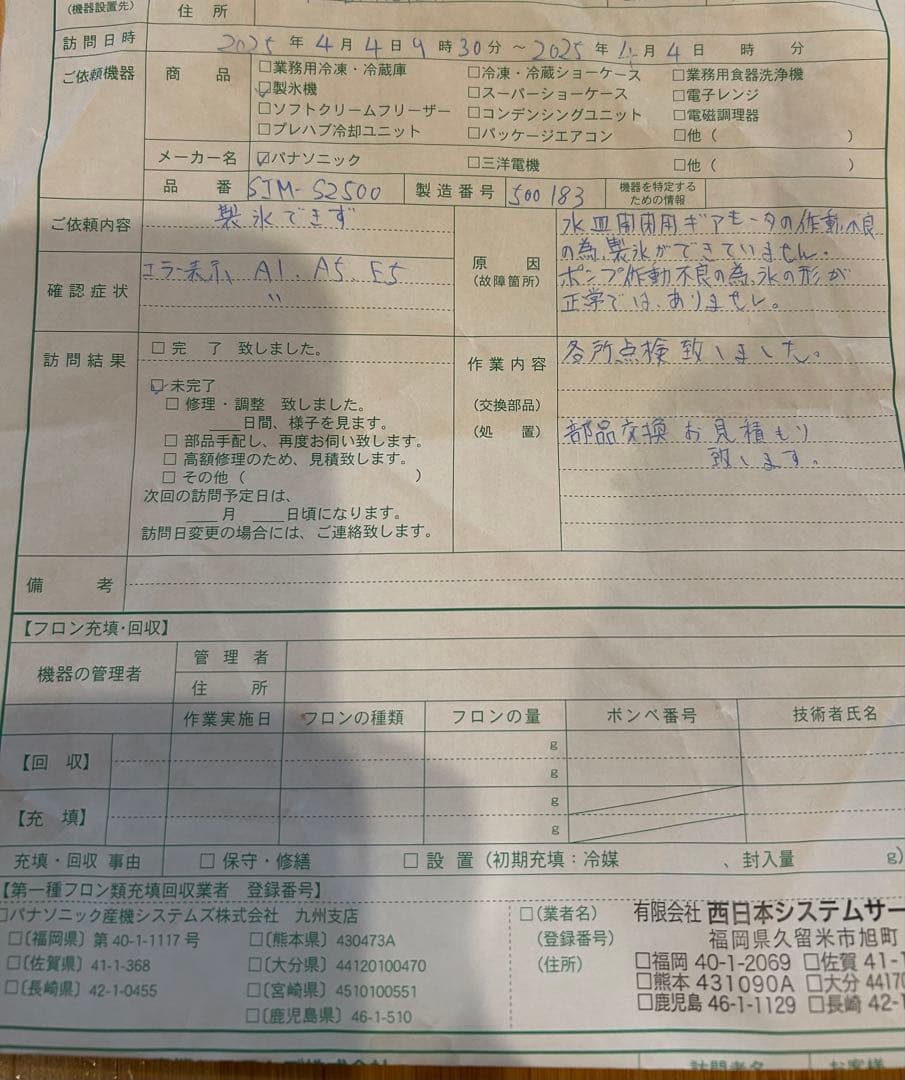 (機器設置先) 住所
訪問日時 2025年4月4日9時30分～2025年4月4日 時 分
ご依頼機器 商品 □業務用冷凍・冷蔵庫 □冷凍・冷蔵ショーケース □業務用食器洗浄機
☑製氷機 □スーパーショーケース □電子レンジ
□ソフトクリームフリーザー □コンデンシングユニット □電磁調理器
□プレハブ冷却ユニット □パッケージエアコン □他( )
メーカー名 ☑パナソニック □三洋電機 □他( )
品番 SIM-S2500 製造番号 500183 機器を特定する
ための情報
ご依頼内容 製氷できず
確認症状 エラー表示、A1、A5、E5
〃
原因
(故障箇所)
氷皿開閉用ギアモータの作動不良
の為、製氷ができていません。
ポンプ作動不良の為、氷の形が
正学では、ありません。
訪問結果 □完了 致しました。
☑未完了
□修理・調整 致しました。
____日間、様子を見ます。
□部品手配し、再度お伺い致します。
□高額修理のため、見積致します。
□その他( )
次回の訪問予定日は、
____月____日頃になります。
訪問日変更の場合には、ご連絡致します。
作業内容
(交換部品)
(処置)
各所点検致しました。
部品交換お見積もり
致します。
備考
【フロン充填・回収】
機器の管理者 管理者
住所
作業実施日 フロンの種類 フロンの量 ボンベ番号 技術者氏名
【回収】 g
g
【充填】 g
g
充填・回収 事由 □保守・修繕 □設置(初期充填：冷媒 、封入量 g)
【第一種フロン類充填回収業者 登録番号】
□パナソニック産機システムズ株式会社 九州支店
□〔福岡県〕第40-1-1117号 □〔熊本県〕430473A
□〔佐賀県〕41-1-368 □〔大分県〕44120100470
□〔長崎県〕42-1-0455 □〔宮崎県〕4510100551
□〔鹿児島県〕46-1-510
□(業者名) 有限会社 西日本システムサー
(登録番号) 福岡県久留米市旭町
(住所) □福岡 40-1-2069 □佐賀 41-1
□熊本 431090A □大分 4417
□鹿児島 46-1-1129 □長崎 42-1
訪問者名 お客様